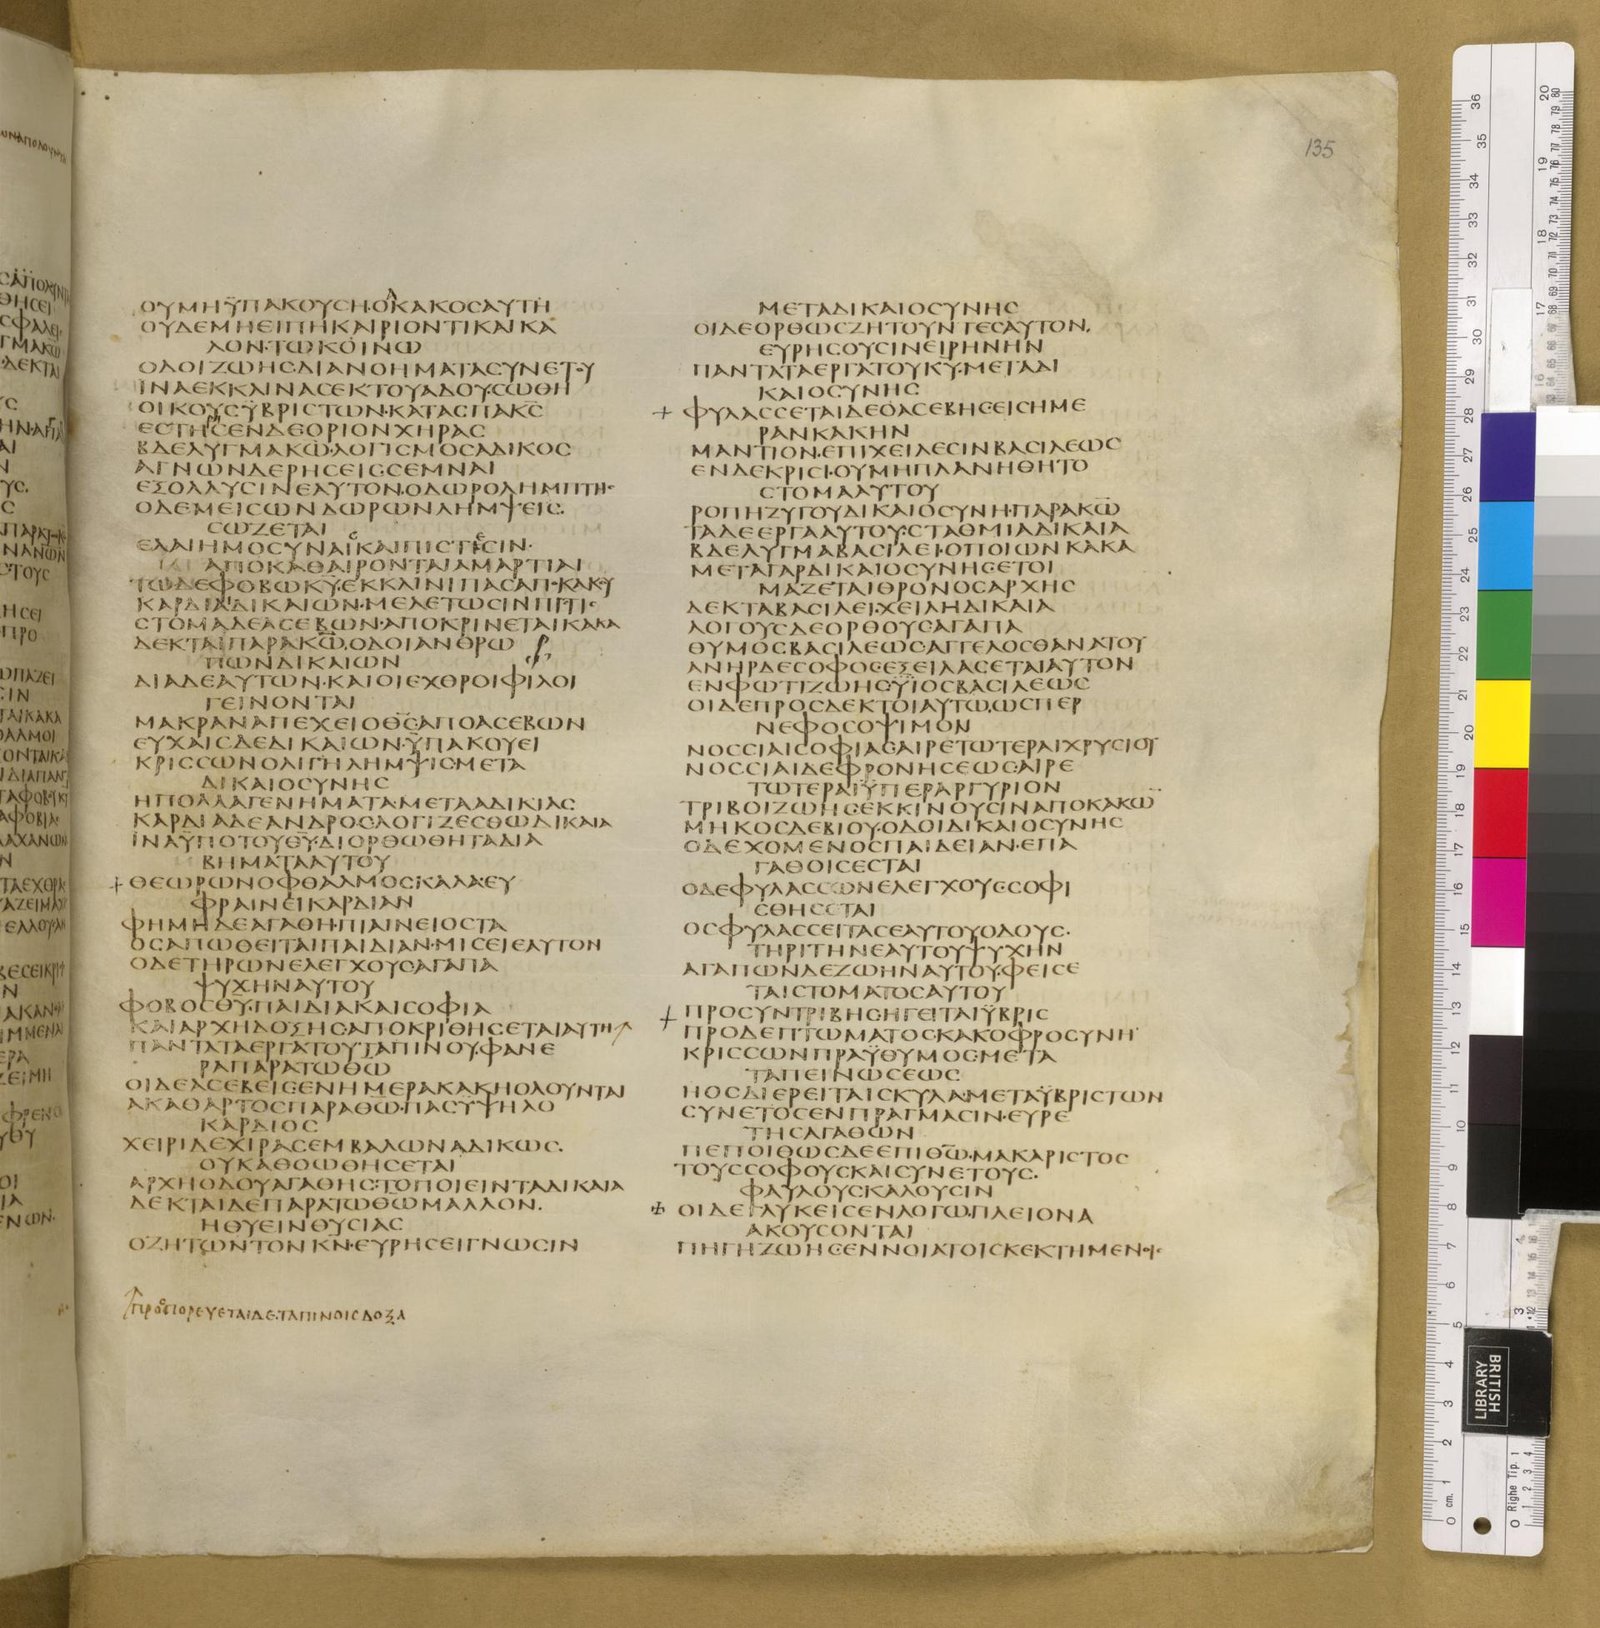 135
ΟΥΜΗΫΠΑΚΟΥCΗ·ΟΚΑΚΟCΑΥΤΗ
ΟΥΔΕΜΗΕΙΠΗΚΑΙΡΙΟΝΤΙΚΑΙΚΑ
ΛΟΝ·ΤΩΚΟΙΝΩ
ΟΔΟΙΖΩΗC·ΔΙΑΝΟΗΜΑΤΑCΥΝΕΤΟΥ
ΙΝΑΕΚΚΛΙΝΑCΕΚΤΟΥΑΔΟΥ·CΩΘΗ
ΟΙΚΟΥCΫΒΡΙCΤΩΝ·ΚΑΤΑCΠΑΚC
ΕCΤΗCΕΝΔΕΟΡΙΟΝΧΗΡΑC
ΒΔΕΛΥΓΜΑΚΩ·ΛΟΓΙCΜΟCΑΔΙΚΟC
ΑΓΝΩΝΔΕΡΗCΕΙCCΕΜΝΑΙ
ΕΞΟΛΛΥCΙΝΕΑΥΤΟΝ·ΟΔΩΡΟΛΗΜΠΤΗC
ΟΔΕΜΕΙCΩΝΔΩΡΩΝΛΗΜΨΕΙC·
CΩΖΕΤΑΙ
ΕΛΑΙΗΜΟCΥΝΑΙCΚΑΙΠΙCΤΕCΙΝ·
ΑΠΟΚΑΘΑΙΡΟΝΤΑΙΑΜΑΡΤΙΑΙ
ΤΩΔΕΦΟΒΩΚΥ·ΕΚΚΛΙΝΙΠΑCΑΠΟΚΑΚΟΥ
ΚΑΡΔΙΑΙΔΙΚΑΙΩΝ·ΜΕΛΕΤΩCΙΝΠΙCΤΙC
CΤΟΜΑΔΕΑCΕΒΩΝ·ΑΠΟΚΡΙΝΕΤΑΙΚΑΚΑ
ΔΕΚΤΑΙΠΑΡΑΚΩ·ΟΔΟΙΑΝΘΡΩ
ΠΩΝΔΙΚΑΙΩΝ
ΔΙΑΔΕΑΥΤΩΝ·ΚΑΙΟΙΕΧΘΡΟΙΦΙΛΟΙ
ΓΕΙΝΟΝΤΑΙ
ΜΑΚΡΑΝΑΠΕΧΕΙΟΘCΑΠΟΑCΕΒΩΝ
ΕΥΧΑΙCΔΕΔΙΚΑΙΩΝ·ΫΠΑΚΟΥΕΙ
ΚΡΙCCΩΝΟΛΙΓΗΛΗΜΨΙCΜΕΤΑ
ΔΙΚΑΙΟCΥΝΗC
ΗΠΟΛΛΑΓΕΝΗΜΑΤΑ·ΜΕΤΑΑΔΙΚΙΑC
ΚΑΡΔΙΑΔΕΑΝΔΡΟC·ΛΟΓΙΖΕCΘΩΔΙΚΑΙΑ
ΙΝΑΫΠΟΤΟΥΘΥ·ΔΙΟΡΘΩΘΗΤΑΔΙΑ
ΒΗΜΑΤΑΑΥΤΟΥ
ΘΕΩΡΩΝΟΦΘΑΛΜΟC·ΚΑΛΑ·ΕΥ
ΦΡΑΙΝΕΙΚΑΡΔΙΑΝ
ΦΗΜΗΔΕΑΓΑΘΗ·ΠΙΑΙΝΕΙΟCΤΑ
ΟCΑΠΩΘΕΙΤΑΙΠΑΙΔΙΑΝ·ΜΙCΕΙΕΑΥΤΟΝ
ΟΔΕΤΗΡΩΝΕΛΕΓΧΟΥCΑΓΑΠΑ
ΨΥΧΗΝΑΥΤΟΥ
ΦΟΒΟCΘΥ·ΠΑΙΔΙΑΚΑΙCΟΦΙΑ
ΚΑΙΑΡΧΗΔΟΞΗCΑΠΟΚΡΙΘΗCΕΤΑΙΑΥΤΗ
ΠΑΝΤΑΤΑΕΡΓΑΤΟΥΤΑΠΙΝΟΥ·ΦΑΝΕ
ΡΑΠΑΡΑΤΩΘΩ
ΟΙΔΕΑCΕΒΕΙCΕΝΗΜΕΡΑΚΑΚΗΟΛΟΥΝΤΑΙ
ΑΚΑΘΑΡΤΟCΠΑΡΑΘΩ·ΠΑCΫΨΗΛΟ
ΚΑΡΔΙΟC
ΧΕΙΡΙΔΕΧΙΡΑCΕΜΒΑΛΩΝΑΔΙΚΩC·
ΟΥΚΑΘΟΩΘΗCΕΤΑΙ
ΑΡΧΗΟΔΟΥΑΓΑΘΗC·ΤΟΠΟΙΕΙΝΤΑΔΙΚΑΙΑ
ΔΕΚΤΑΙΔΕΠΑΡΑΤΩΘΩΜΑΛΛΟΝ·
ΗΘΥΕΙΝΘΥCΙΑC
ΟΖΗΤΩΝΤΟΝΚΝ·ΕΥΡΗCΕΙΓΝΩCΙΝ
ΠΡΟCΠΟΡΕΥΕΤΑΙΔΕΤΑΠΙΝΟΙCΔΟΞΑ
ΜΕΤΑΔΙΚΑΙΟCΥΝΗC
ΟΙΔΕΟΡΘΩCΖΗΤΟΥΝΤΕCΑΥΤΟΝ·
ΕΥΡΗCΟΥCΙΝΕΙΡΗΝΗΝ
ΠΑΝΤΑΤΑΕΡΓΑΤΟΥΚΥ·ΜΕΤΑΔΙ
ΚΑΙΟCΥΝΗC
ΦΥΛΑCCΕΤΑΙΔΕΟΑCΕΒΗCΕΙCΗΜΕ
ΡΑΝΚΑΚΗΝ
ΜΑΝΤΙΟΝ·ΕΠΙΧΕΙΛΕCΙΝΒΑCΙΛΕΩC
ΕΝΔΕΚΡΙCΙ·ΟΥΜΗΠΛΑΝΗΘΗΤΟ
CΤΟΜΑΑΥΤΟΥ
ΡΟΠΗΖΥΓΟΥΔΙΚΑΙΟCΥΝΗ·ΠΑΡΑΚΩ
ΤΑΔΕΕΡΓΑΑΥΤΟΥ·CΤΑΘΜΙΑΔΙΚΑΙΑ
ΒΔΕΛΥΓΜΑΒΑCΙΛΕΙ·ΟΠΟΙΩΝΚΑΚΑ
ΜΕΤΑΓΑΡΔΙΚΑΙΟCΥΝΗCΕΤΟΙ
ΜΑΖΕΤΑΙΘΡΟΝΟCΑΡΧΗC
ΔΕΚΤΑΒΑCΙΛΕΙ·ΧΕΙΛΗΔΙΚΑΙΑ
ΛΟΓΟΥCΔΕΟΡΘΟΥCΑΓΑΠΑ
ΘΥΜΟCΒΑCΙΛΕΩC·ΑΓΓΕΛΟCΘΑΝΑΤΟΥ
ΑΝΗΡΔΕCΟΦΟCΕΞΕΙΛΑCΕΤΑΙΑΥΤΟΝ
ΕΝΦΩΤΙΖΩΗCΥΪΟCΒΑCΙΛΕΩC
ΟΙΔΕΠΡΟCΔΕΚΤΟΙΑΥΤΩ·ΩCΠΕΡ
ΝΕΦΟCΟΨΙΜΟΝ
ΝΟCCΙΑΙCΟΦΙΑCΑΙΡΕΤΩΤΕΡΑΙΧΡΥCΙΟΥ
ΝΟCCΙΑΙΔΕΦΡΟΝΗCΕΩC·ΑΙΡΕ
ΤΩΤΕΡΑΙΫΠΕΡΑΡΓΥΡΙΟΝ
ΤΡΙΒΟΙΖΩΗCΕΚΚΙΝΟΥCΙΝΑΠΟΚΑΚΩ
ΜΗΚΟCΔΕΒΙΟΥ·ΟΔΟΙΔΙΚΑΙΟCΥΝΗC
ΟΔΕΧΟΜΕΝΟCΠΑΙΔΕΙΑΝ·ΕΠΑ
ΓΑΘΟΙCΕCΤΑΙ
ΟΔΕΦΥΛΑCCΩΝΕΛΕΓΧΟΥCCΟΦΙ
CΘΗCΕΤΑΙ
ΟCΦΥΛΑCCΕΙΤΑCΕΑΥΤΟΥΟΔΟΥC·
ΤΗΡΙΤΗΝΕΑΥΤΟΥΨΥΧΗΝ
ΑΓΑΠΩΝΔΕΖΩΗΝΑΥΤΟΥ·ΦΕΙCΕ
ΤΑΙCΤΟΜΑΤΟCΑΥΤΟΥ
ΠΡΟCΥΝΤΡΙΒΗCΗΓΕΙΤΑΙΫΒΡΙC
ΠΡΟΔΕΠΤΩΜΑΤΟC·ΚΑΚΟΦΡΟCΥΝΗ
ΚΡΙCCΩΝΠΡΑΫΘΥΜΟCΜΕΤΑ
ΤΑΠΕΙΝΩCΕΩC
ΗΟCΔΙΕΡΕΙΤΑΙCΚΥΛΑ·ΜΕΤΑΫΒΡΙCΤΩΝ
CΥΝΕΤΟCΕΝΠΡΑΓΜΑCΙΝ·ΕΥΡΕ
ΤΗCΑΓΑΘΩΝ
ΠΕΠΟΙΘΩCΔΕΕΠΙΘΩ·ΜΑΚΑΡΙCΤΟC
ΤΟΥCCΟΦΟΥCΚΑΙCΥΝΕΤΟΥC·
ΦΑΥΛΟΥCΚΑΛΟΥCΙΝ
ΟΙΔΕΓΛΥΚΕΙCΕΝΛΟΓΩ·ΠΛΕΙΟΝΑ
ΑΚΟΥCΟΝΤΑΙ
ΠΗΓΗΖΩΗCΕΝΝΟΙΑΤΟΙCΚΕΚΤΗΜΕΝΟΙC
BRITISH
LIBRARY